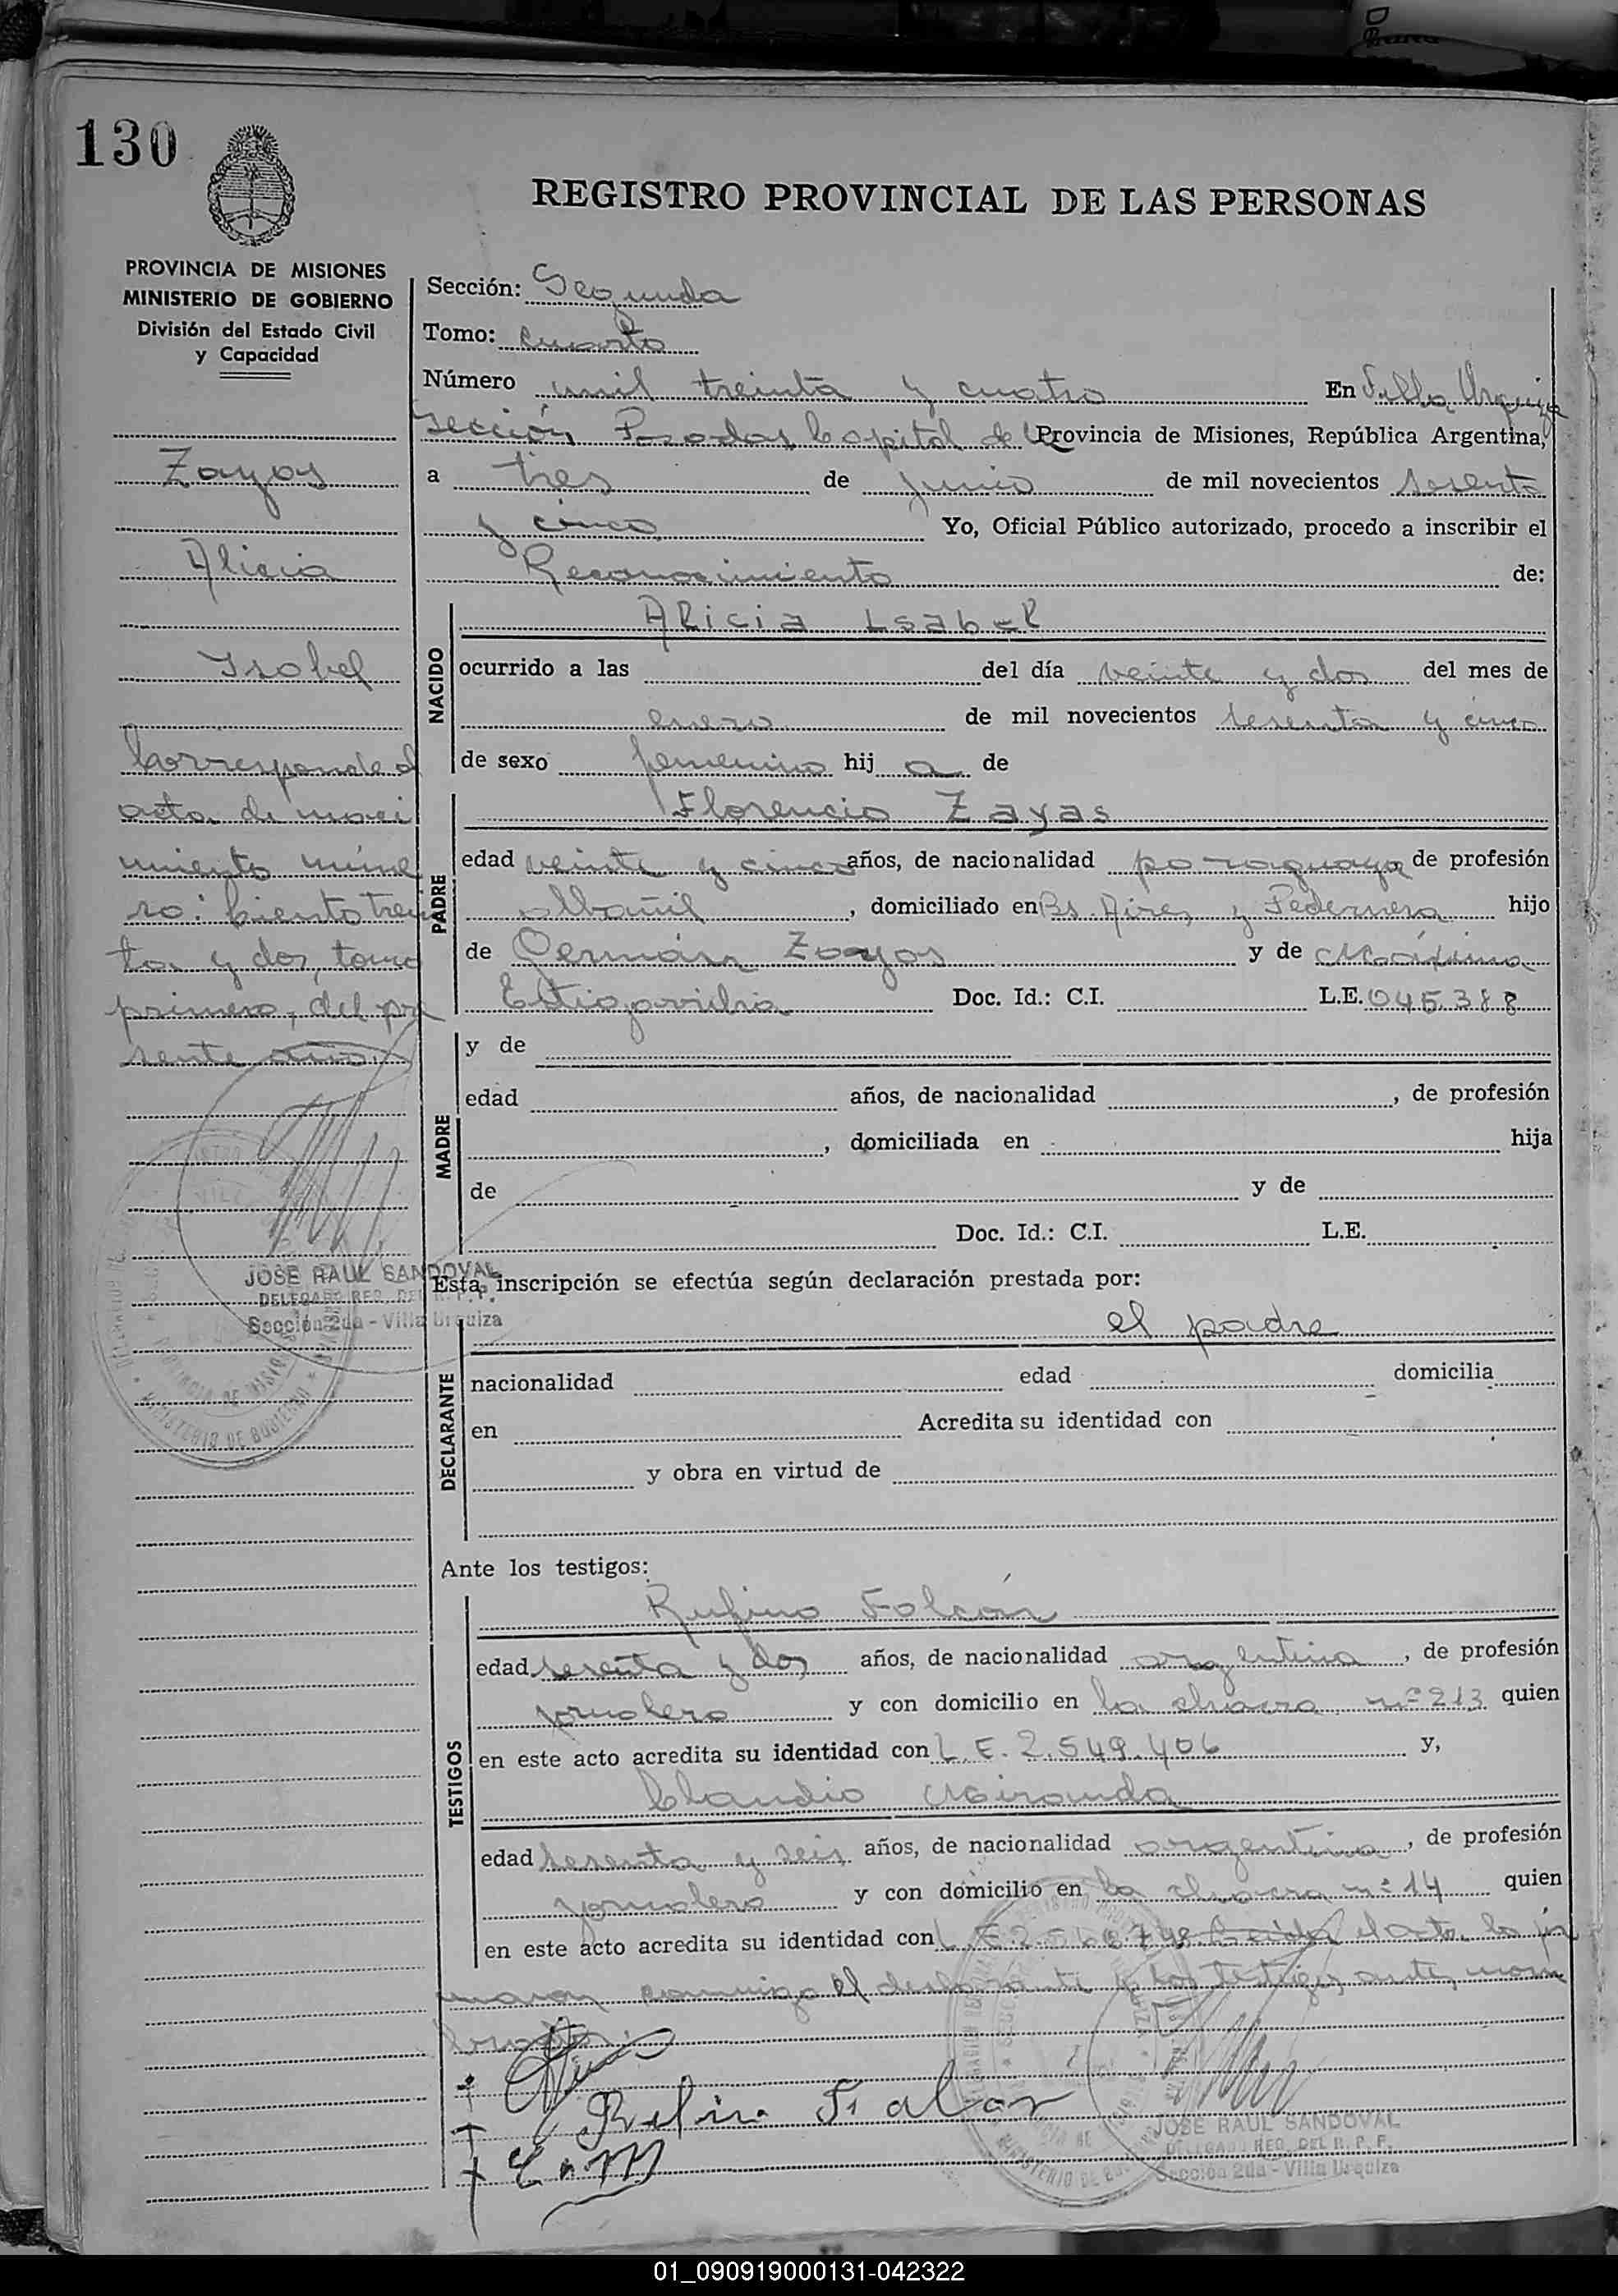 130
REGISTRO PROVINCIAL DE LAS PERSONAS
PROVINCIA DE MISIONES
MINISTERIO DE GOBIERNO
División del Estado Civil
y Capacidad
Zayas
Alicia
Isabel
Corresponde al
acta de naci
miento núme
ro: Ciento trein
ta y dos, tomo
primero, del pre
sente año.
JOSE RAUL SANDOVAL
DELEGADO REG. DEL R. P. P.
Sección 2da - Villa Urquiza
Sección: Segunda
Tomo: Cuarto
Número mil treinta y cuatro En Villa Urquiza
sección Posadas Capital de la Provincia de Misiones, República Argentina,
a tres de junio de mil novecientos sesenta
y cinco Yo, Oficial Público autorizado, procedo a inscribir el
Reconocimiento de:
NACIDO
Alicia Isabel
ocurrido a las del día veinte y dos del mes de
enero de mil novecientos sesenta y cinco
de sexo femenino hij a de
PADRE
Florencio Zayas
edad veinte y cinco años, de nacionalidad paraguaya de profesión
albañil, domiciliado en Bs. Aires y Pedernera hijo
de Germán Zayas y de Máxima
Estigarribia Doc. Id.: C.I. L.E. 045.388
MADRE
y de
edad años, de nacionalidad , de profesión
, domiciliada en hija
de y de
Doc. Id.: C.I. L.E.
Esta inscripción se efectúa según declaración prestada por:
DECLARANTE
el padre
nacionalidad edad domicilia
en Acredita su identidad con
y obra en virtud de
Ante los testigos:
TESTIGOS
Rufino Falcón
edad sesenta y dos años, de nacionalidad argentina, de profesión
jornalero y con domicilio en la chacra nº 213 quien
en este acto acredita su identidad con L.E. 2.549.406 y,
Claudio Miranda
edad sesenta y seis años, de nacionalidad argentina, de profesión
jornalero y con domicilio en la chacra nº 14 quien
en este acto acredita su identidad con L.E. Leída el acta la fir
maron conmigo el declarante y los testigos antes nom
brados.
Rufino Falcon
C. M
JOSE RAUL SANDOVAL
DELEGADO REG. DEL R. P. P.
Sección 2da - Villa Urquiza
01_090919000131-042322